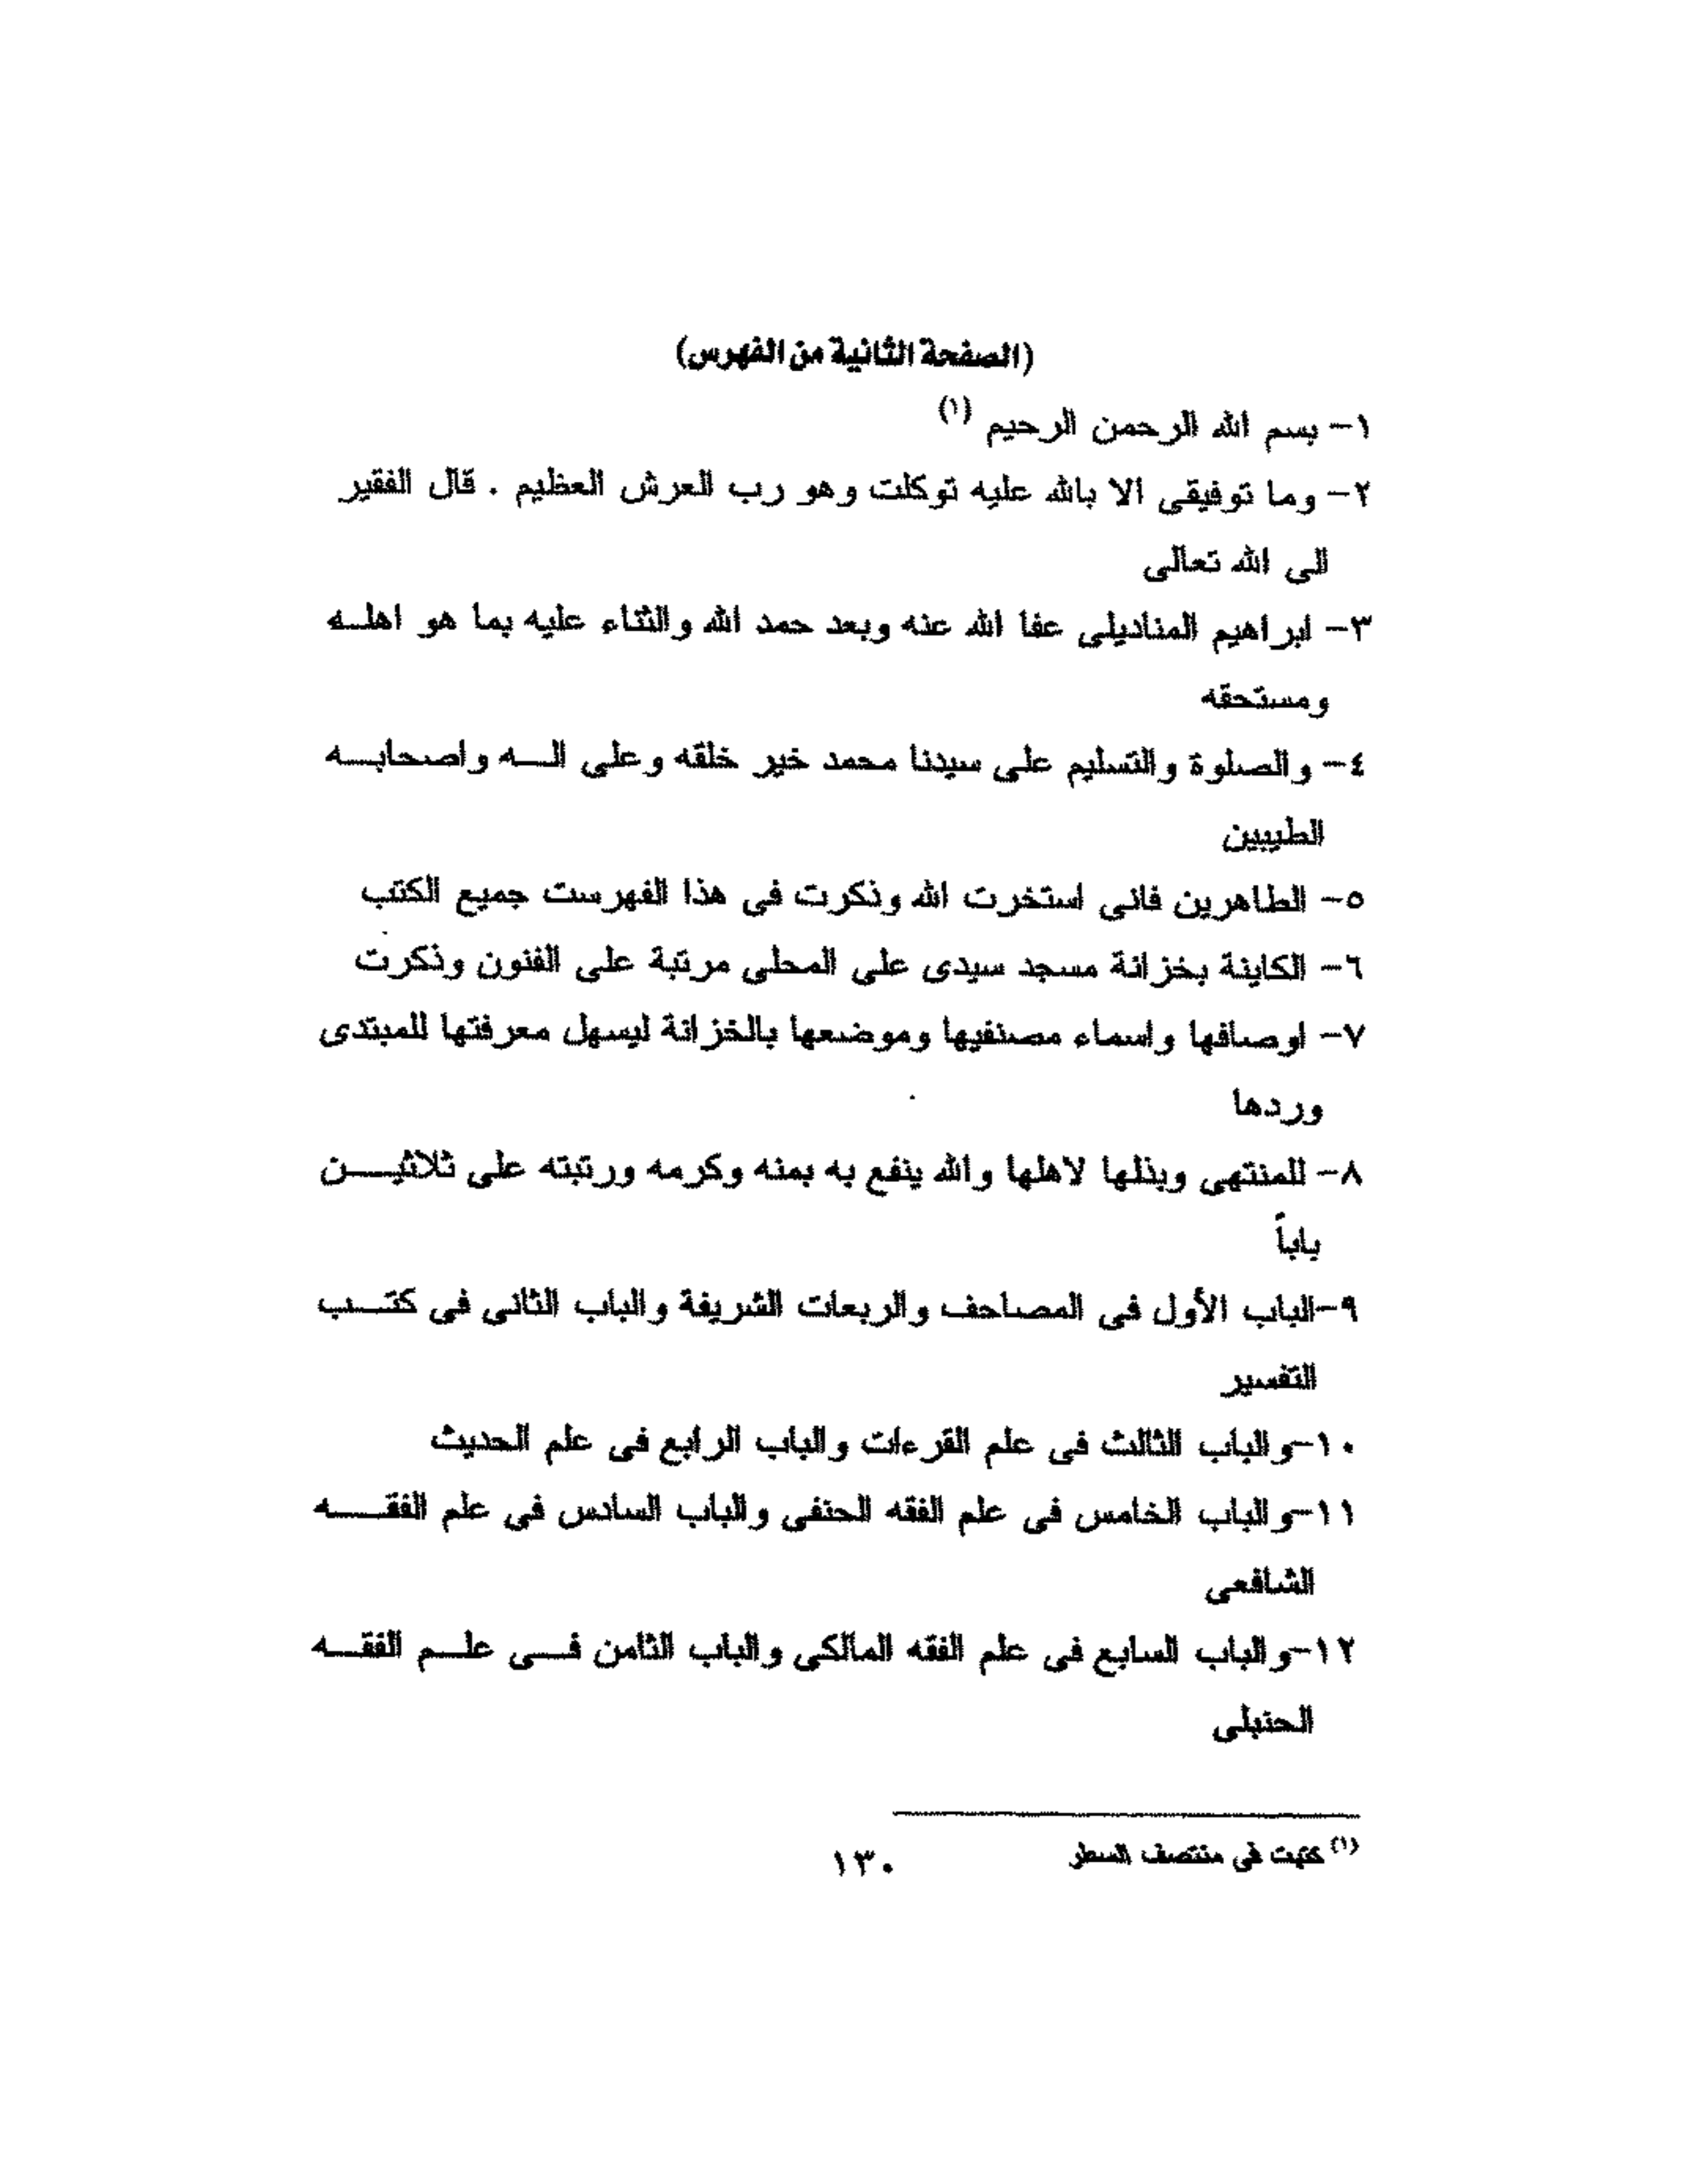 (الصفحة الثانية من الفهرس)
١- بسم الله الرحمن الرحيم (١)
٢- وما توفيقى الا بالله عليه توكلت وهو رب العرش العظيم . قال الفقير
الى الله تعالى
٣- ابراهيم المناديلى عفا الله عنه وبعد حمد الله والثناء عليه بما هو اهله
ومستحقه
٤- والصلوة والتسليم على سيدنا محمد خير خلقه وعلى اله واصحابه
الطيبين
٥- الطاهرين فانى استخرت الله وذكرت فى هذا الفهرست جميع الكتب
٦- الكاينة بخزانة مسجد سيدى على المحلى مرتبة على الفنون وذكرت
٧- اوصافها واسماء مصنفيها وموضعها بالخزانة ليسهل معرفتها للمبتدى
وردها
٨- للمنتهى وبذلها لاهلها والله ينفع به بمنه وكرمه ورتبته على ثلاثين
باباً
٩-الباب الأول فى المصاحف والربعات الشريفة والباب الثانى فى كتب
التفسير
١٠-والباب الثالث فى علم القرءات والباب الرابع فى علم الحديث
١١-والباب الخامس فى علم الفقه الحنفى والباب السادس فى علم الفقه
الشافعى
١٢-والباب السابع فى علم الفقه المالكى والباب الثامن فى علم الفقه
الحنبلى
(١) كتبت فى منتصف السطر
١٣٠